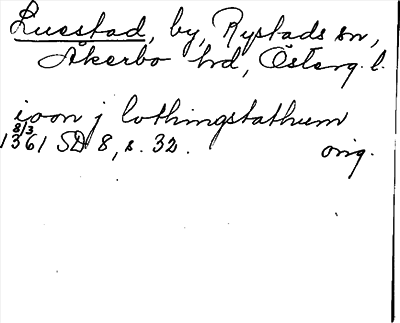 Luestad, by, Rystads sn,
Åkerbo hd, Österg. l.
ioon j lothingstathum
8/3
1361 SD 8, s. 32. orig.